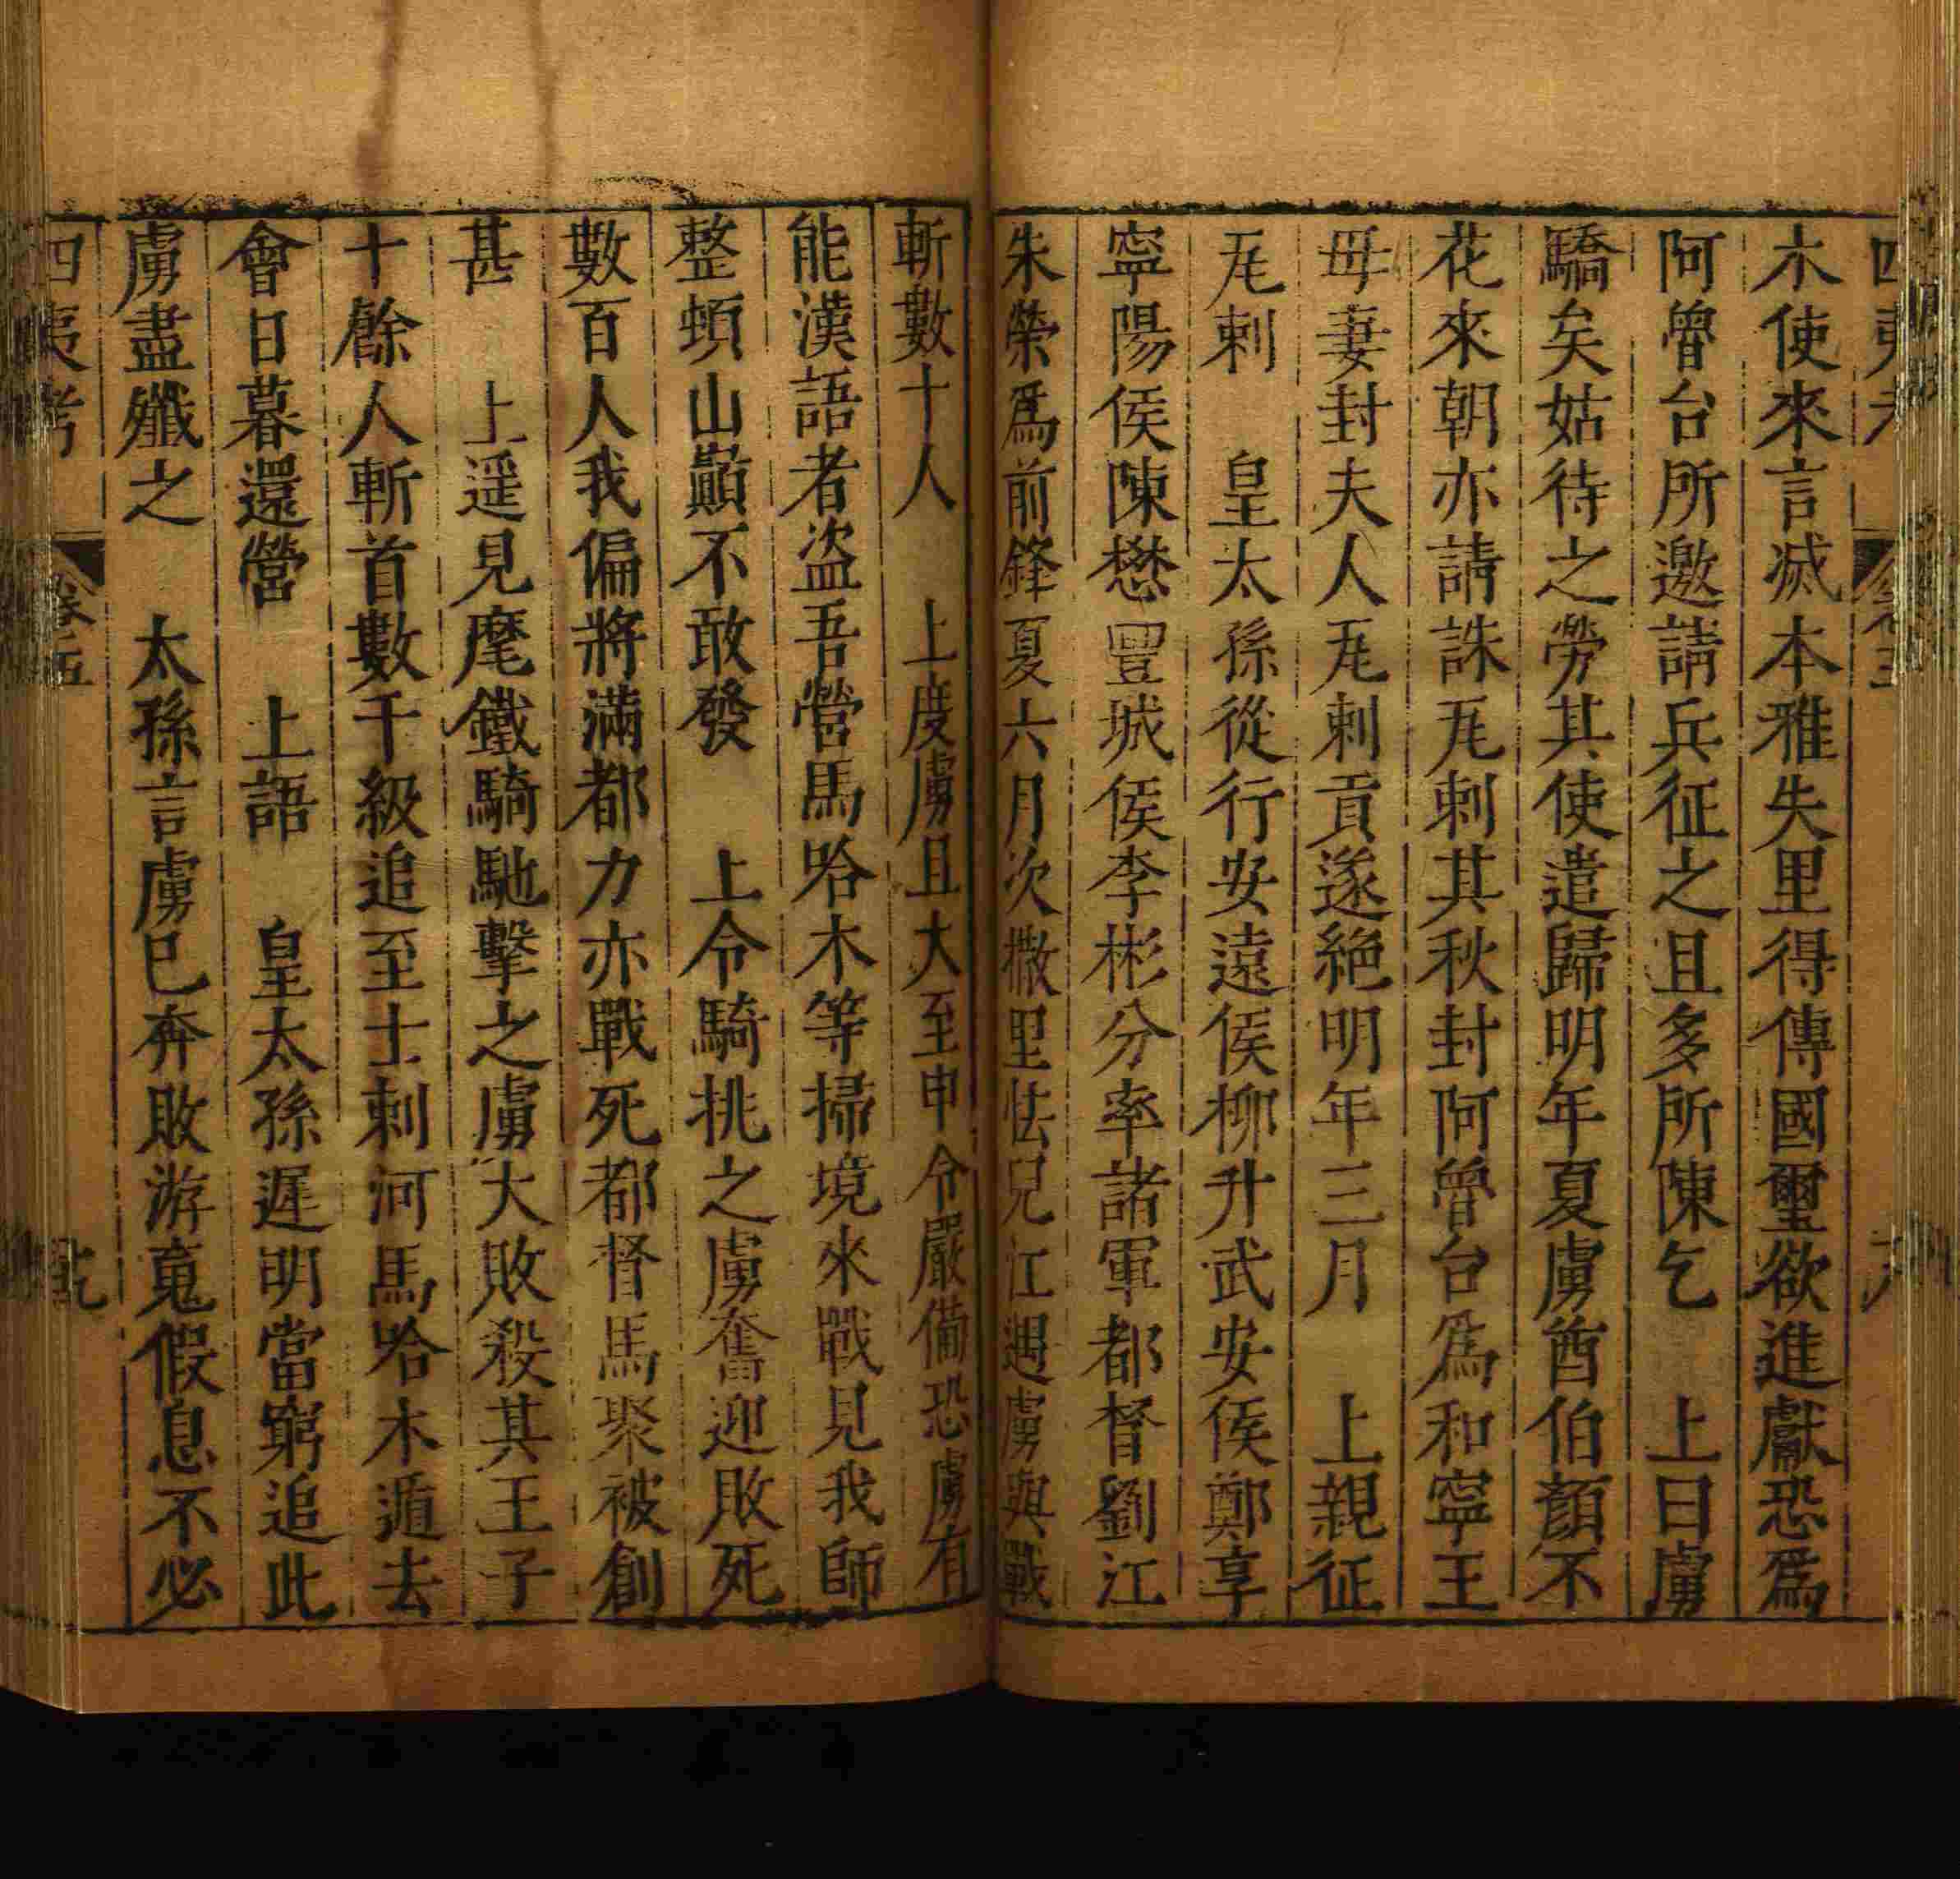 四夷考 卷五
木使來言滅本雅失里得傳國璽欲進獻恐爲
阿魯台所邀請兵征之且多所陳乞　上曰虜
驕矣姑待之勞其使遣歸明年夏虜酋伯顏不
花來朝亦請誅瓦剌其秋封阿魯台爲和寧王
母妻封夫人瓦剌貢遂絕明年三月　上親征
瓦剌　皇太孫從行安遠侯柳升武安侯鄭亨
寧陽侯陳懋豐城侯李彬分率諸軍都督劉江
朱榮爲前鋒夏六月次撒里怯兒江遇虜與戰
斬數十人　上度虜且大至申令嚴備恐虜有
能漢語者盜吾營馬哈木等掃境來戰見我師
整頓山巔不敢發　上令騎挑之虜奮迎敗死
數百人我偏將滿都力亦戰死都督馬聚被創
甚　上遥見麾鐵騎馳擊之虜大敗殺其王子
十餘人斬首數千級追至土剌河馬哈木遁去
會日暮還營　上語　皇太孫遲明當窮追此
虜盡殲之　太孫言虜已奔敗游䰟假息不必
四夷考 卷五